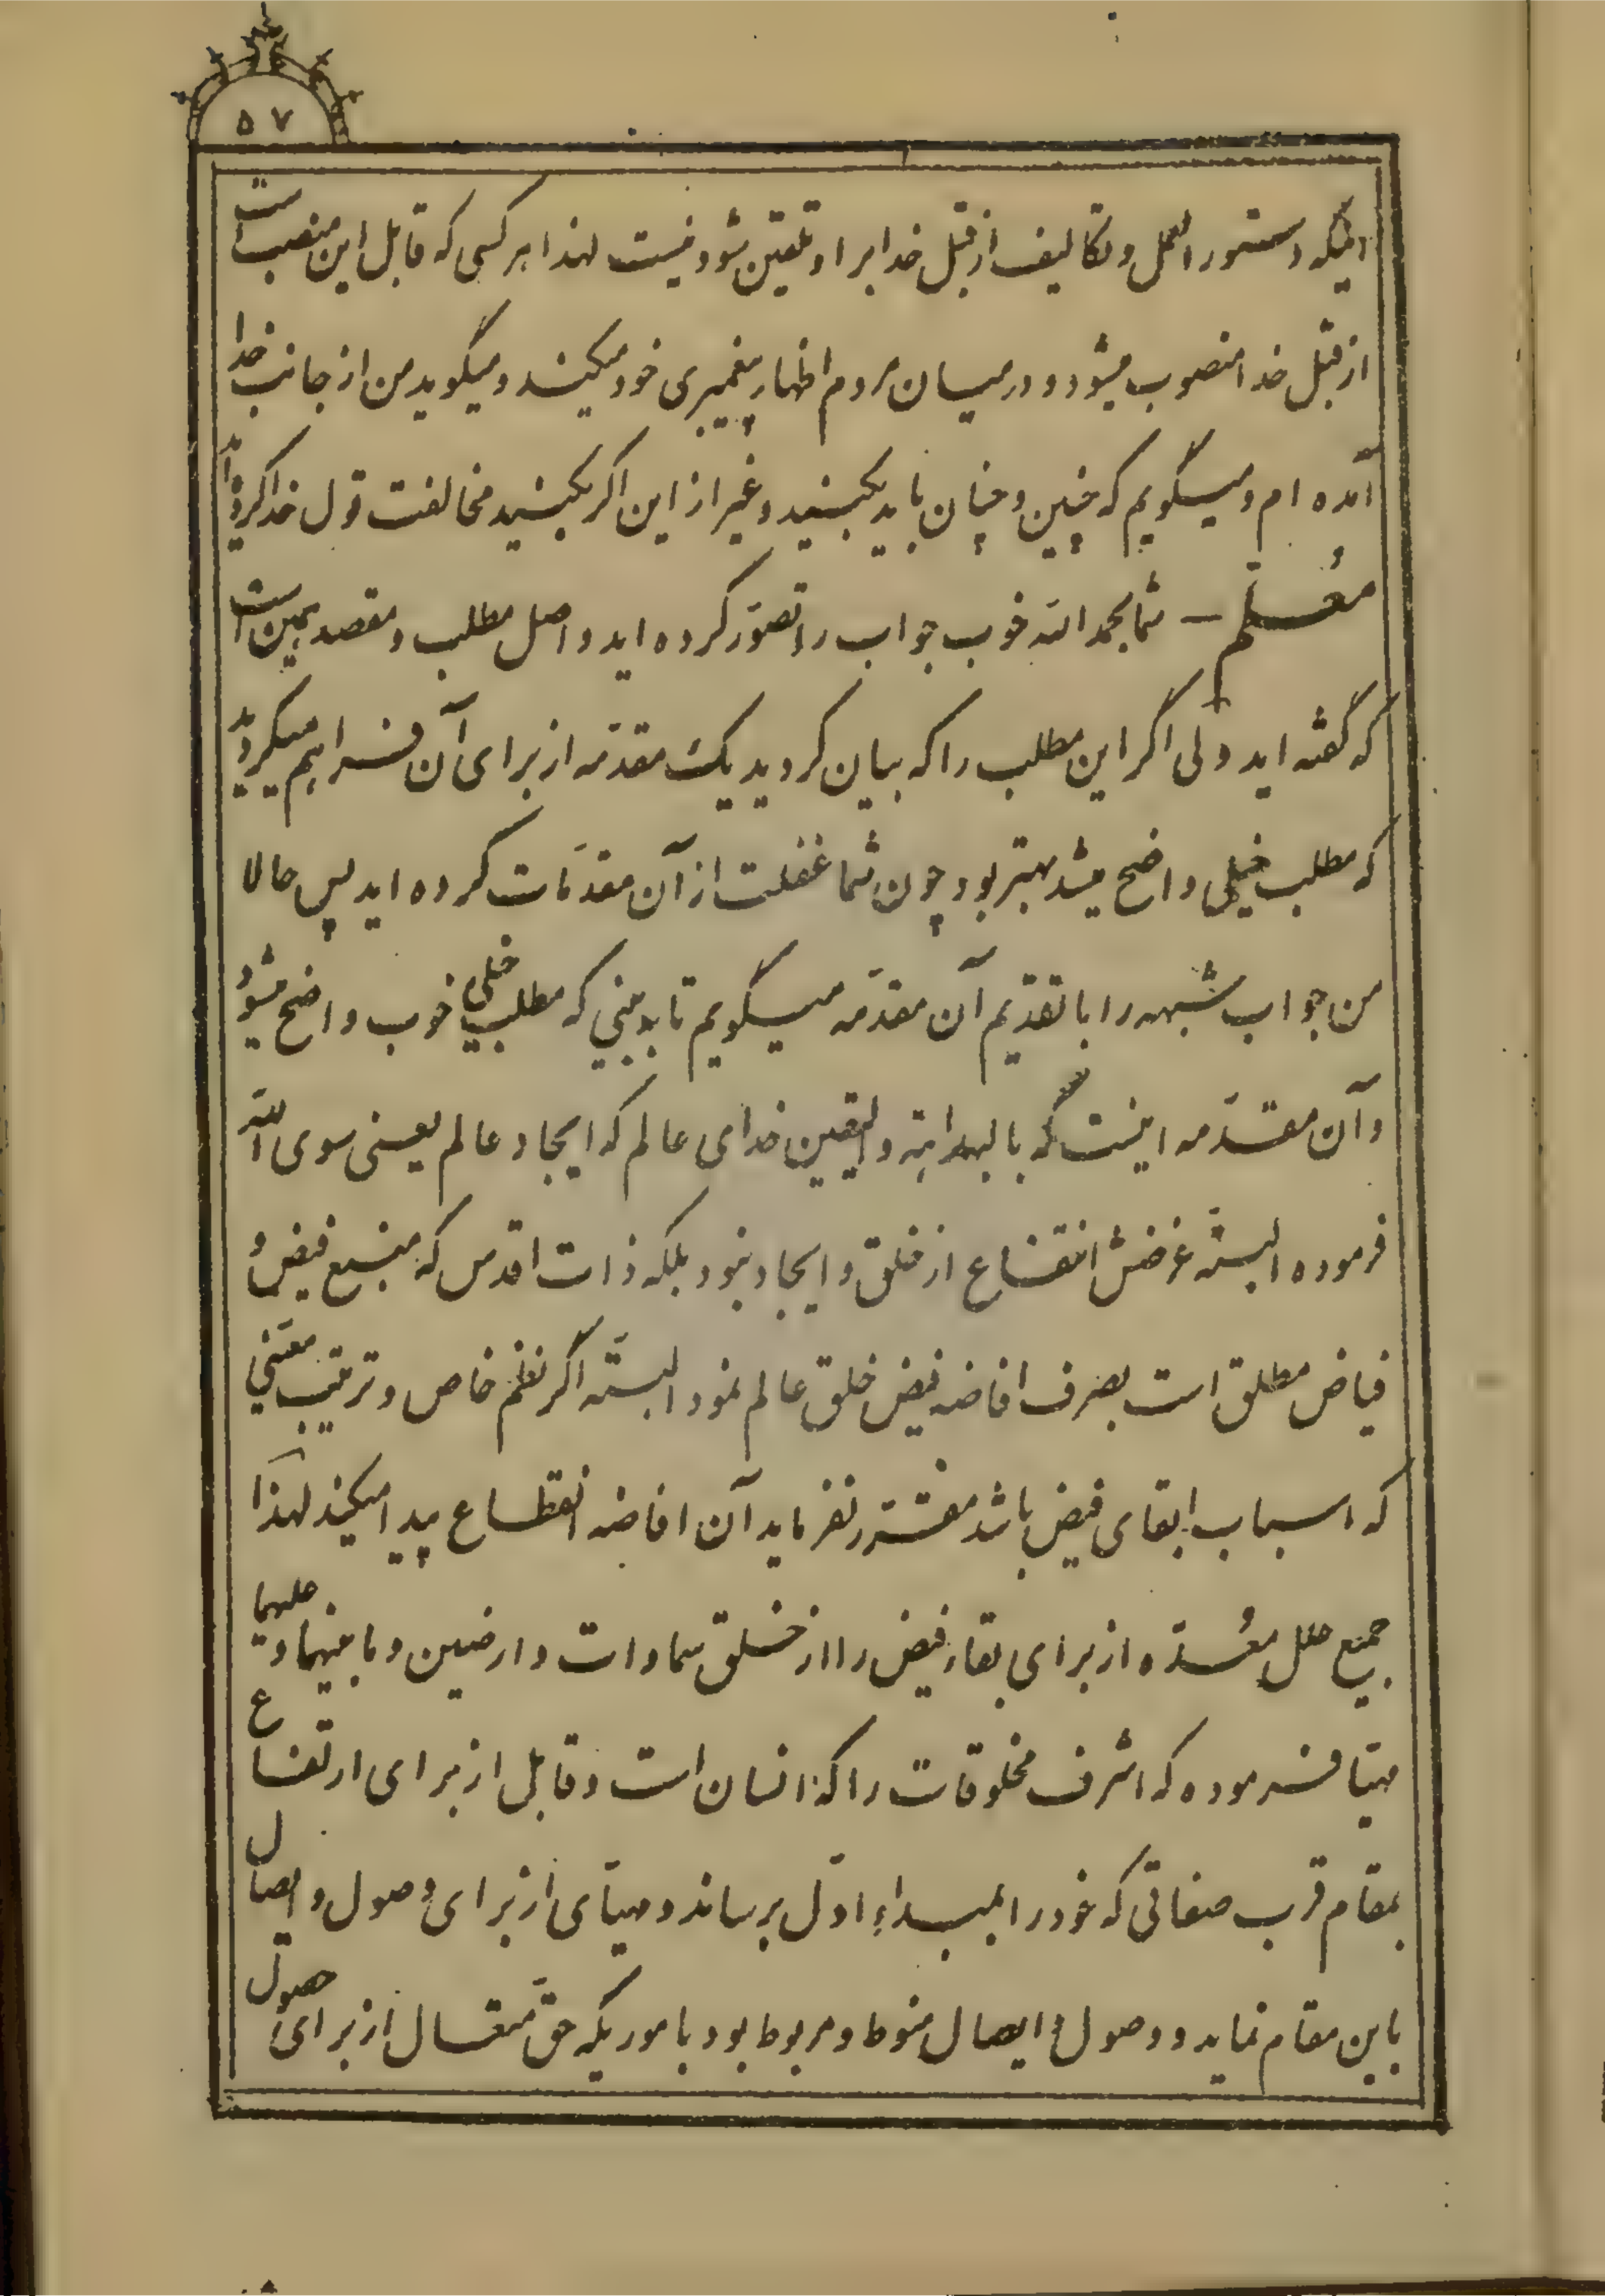 ۵۷
اینکه دستور العمل و تکالیف از قبل خدا بر او تلقین شود نیست لهذا هر کسی که قابل این منصب است
از قبل خدا منصوب میشود و در میان مردم اظهار پیغمبری خود میکند و میگوید من از جانب خدا
آمده ام و میگویم که چنین و چنان باید بکنید و غیر از این اگر بکنید مخالفت قول خدا کرده‌اید
معلّم — شما بحمد الله خوب جواب را تصوّر کرده اید و اصل مطلب و مقصد همین است
که گفته اید ولی اگر این مطلب را که بیان کردید یک مقدّمه از برای آن فراهم میکردید
که مطلب خیلی واضح میشد بهتر بود چون شما غفلت از آن مقدّمات کرده اید پس حالا
من جواب شبهه را با تقدیم آن مقدّمه میگویم تا به بینی که مطلب خیلی خوب واضح میشود
و آن مقدّمه اینست که بالبداهة و الیقین خدای عالم که ایجاد عالم یعنی سوی الله
فرموده البتّه غرضش انتفاع از خلق و ایجاد نبود بلکه ذات اقدس که منبع فیض و
فیاض مطلق است بصرف افاضه فیض خلق عالم نمود البتّه اگر نظم خاص و ترتیب معیّنی
که اسباب ابقای فیض باشد مقرّر نفرماید آن افاضه انقطاع پیدا میکند لهذا
جمیع علل معدّه از برای بقاء فیض را از خلق سماوات و ارضین و ما فیهما و علیهما
مهیّا فرموده که اشرف مخلوقات را که انسان است و قابل از برای ارتفاع
بمقام قرب صفاتی که خود را بمبداء اوّل برساند و مهیّای از برای وصول و ایصال
باین مقام نماید و وصول و ایصال منوط و مربوط بود باموریکه حقّ متعال از برای حصول